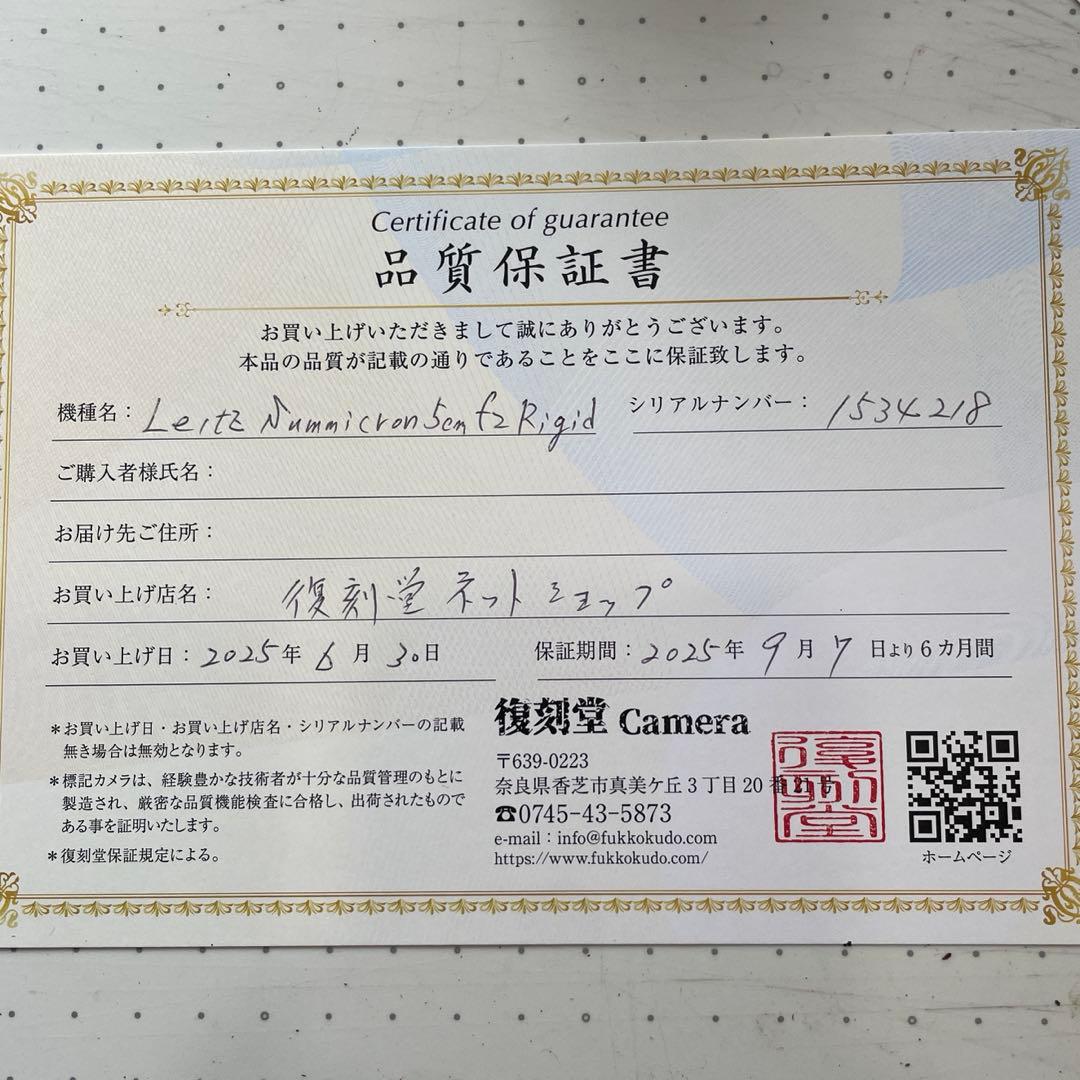 Certificate of guarantee
品質保証書
お買い上げいただきまして誠にありがとうございます。
本品の品質が記載の通りであることをここに保証致します。
機種名： Leitz Summicron 5cm f2 Rigid シリアルナンバー： 1534218
ご購入者様氏名：
お届け先ご住所：
お買い上げ店名： 復刻堂 ネットショップ
お買い上げ日： 2025年 6月 30日 保証期間： 2025年 9月 7日より6カ月間
＊お買い上げ日・お買い上げ店名・シリアルナンバーの記載
無き場合は無効となります。
＊標記カメラは、経験豊かな技術者が十分な品質管理のもとに
製造され、厳密な品質機能検査に合格し、出荷されたもので
ある事を証明いたします。
＊復刻堂保証規定による。
復刻堂 Camera
〒639-0223
奈良県香芝市真美ケ丘3丁目20番21号
☎0745-43-5873
e-mail：info@fukkokudo.com
https://www.fukkokudo.com/
復刻堂
ホームページ